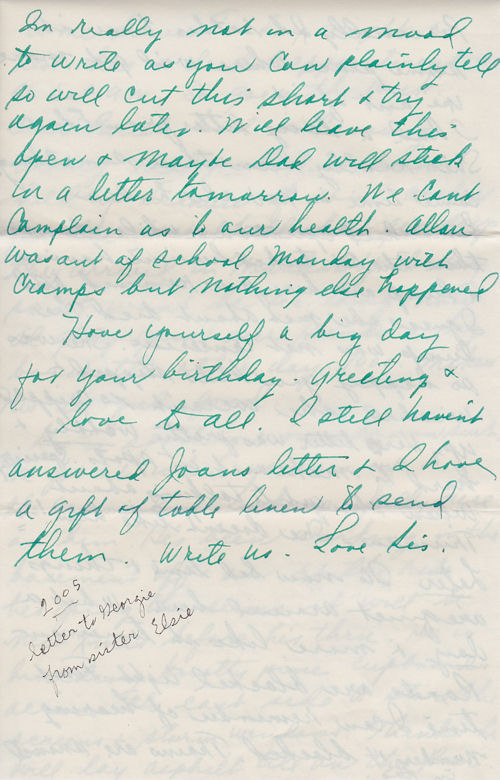 Im really not in a mood
to write as you can plainly tell
so will cut this short & try
again later. Will leave this
open & maybe Dad will stick
in a letter tomorrow. We cant
complain as to our health. Allan
was out of school Monday with
cramps but nothing else happened
Have yourself a big day
for your birthday. Greeting &
love to all. I still havent
answered Joans letter & I have
a gift of table linen to send
them. Write us. Love Sis.
2005
letter to Georgie
from sister Elsie